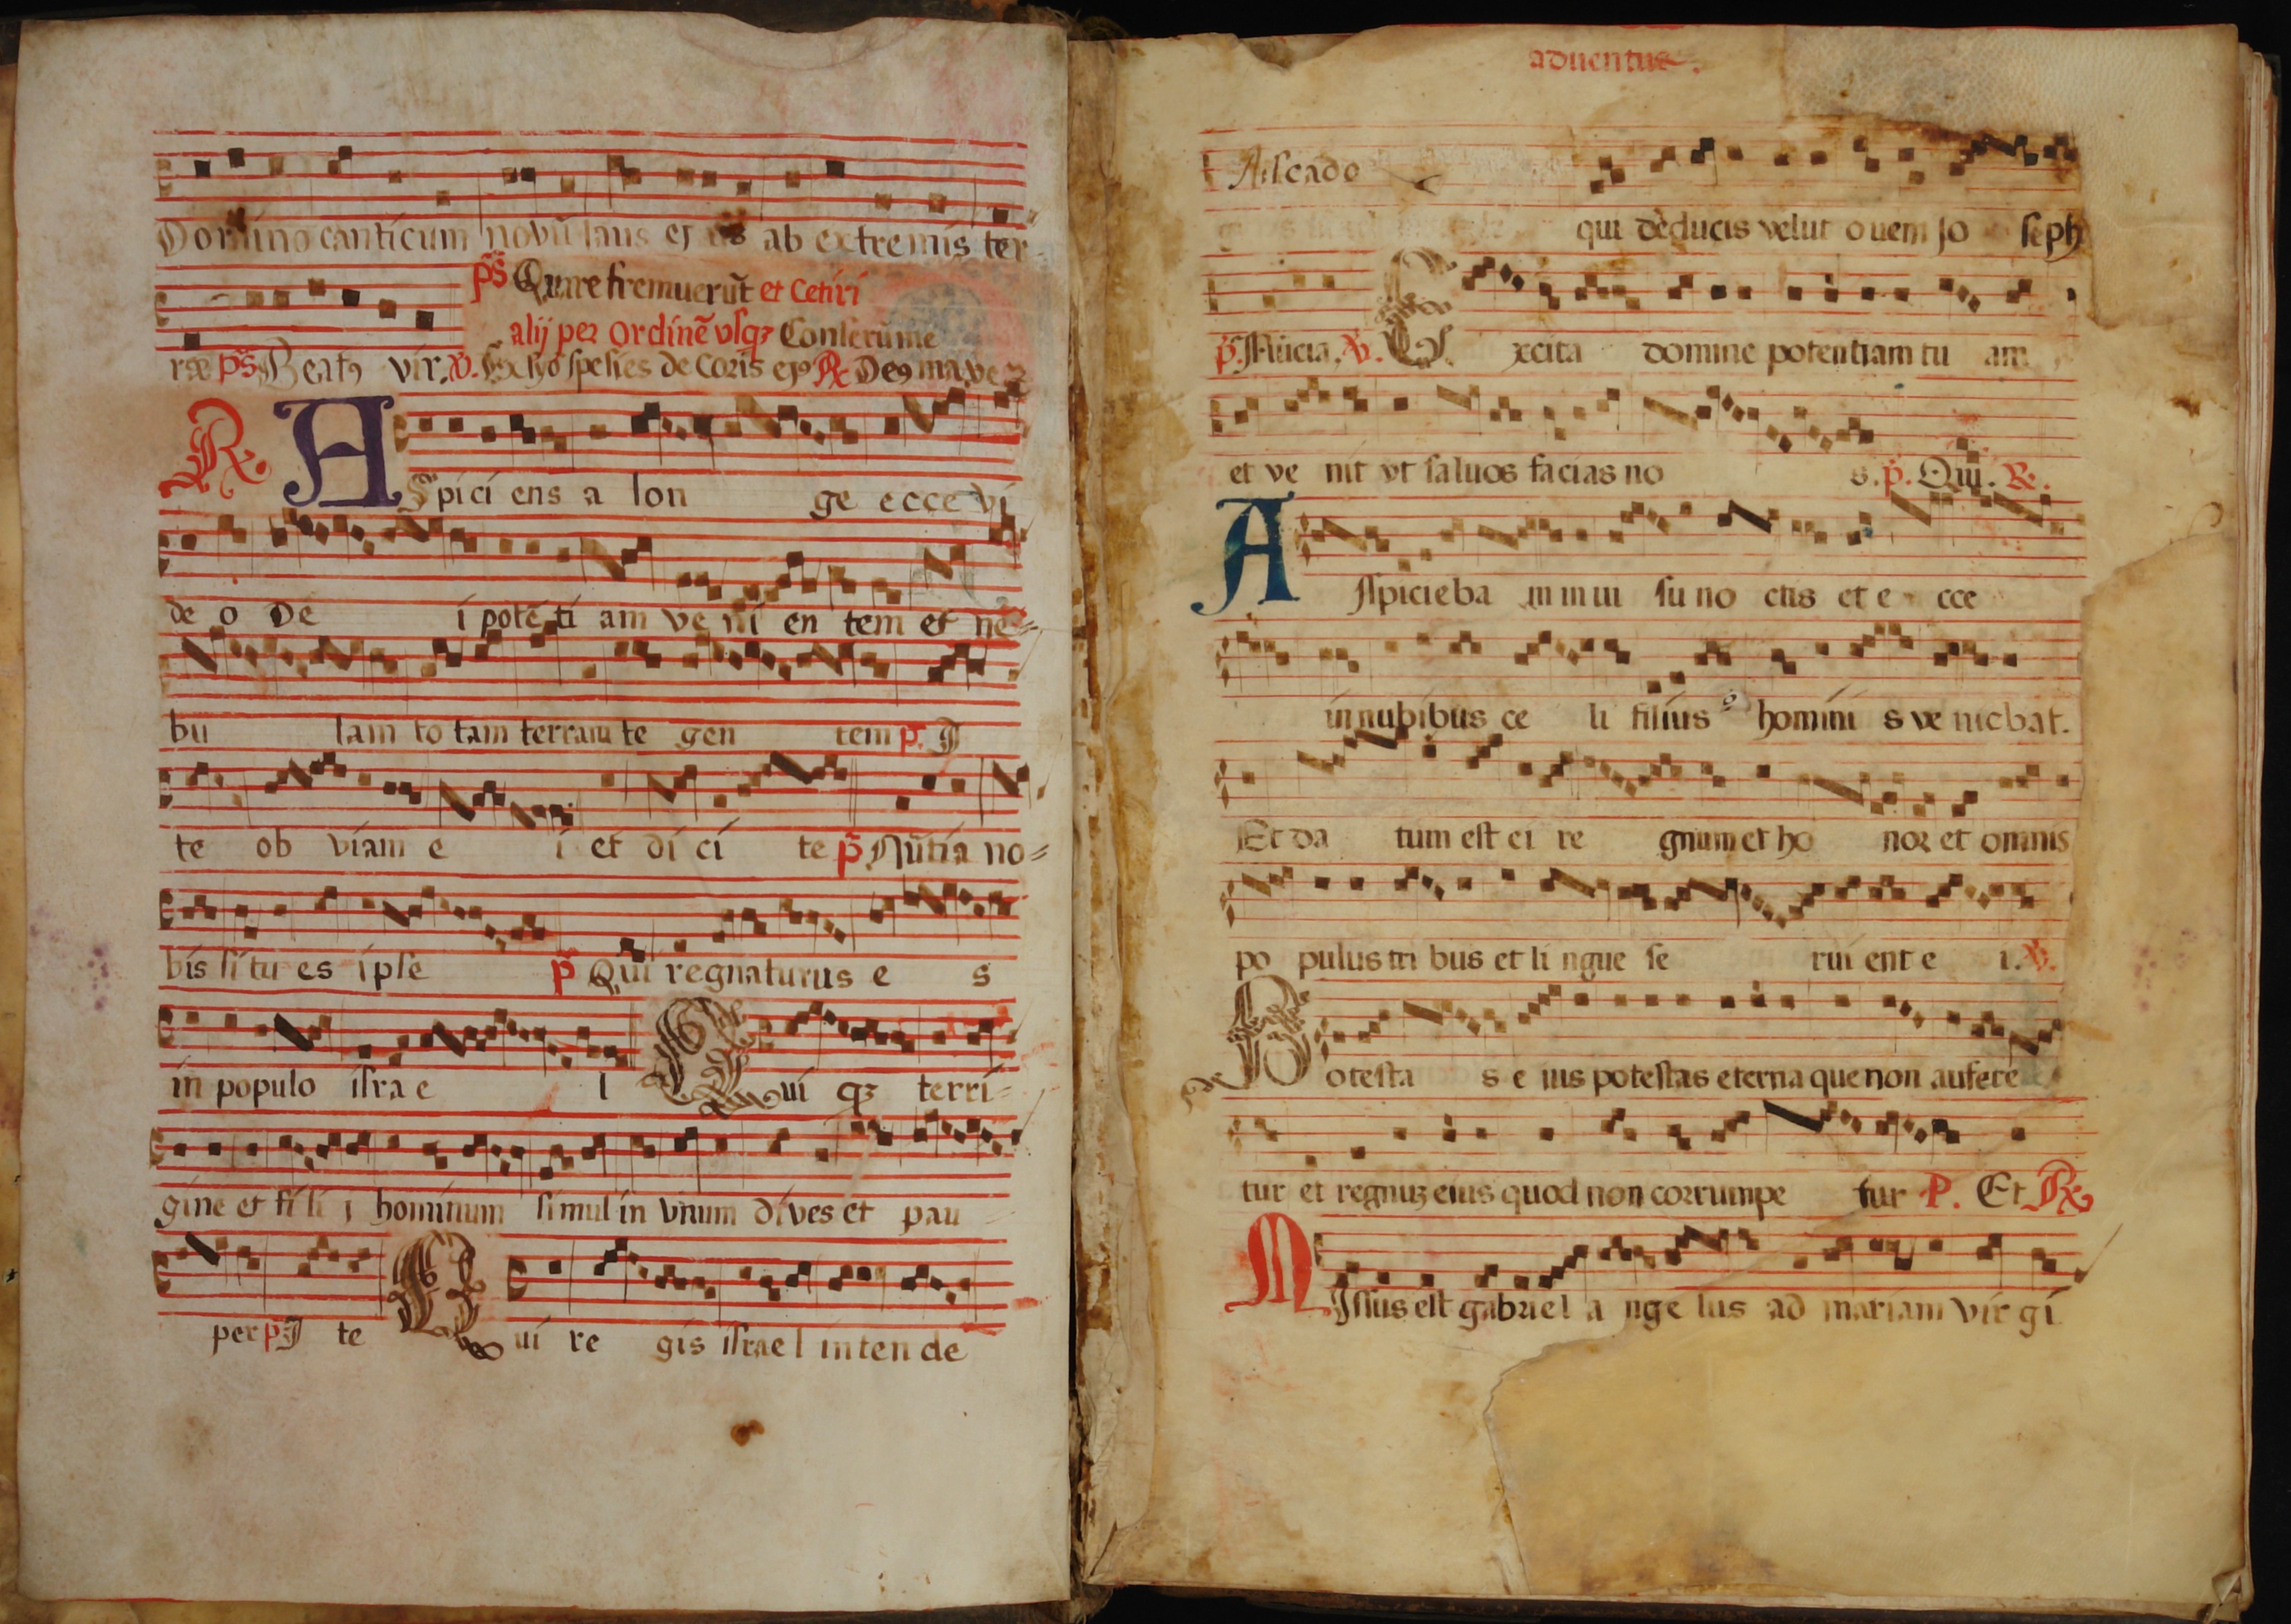 Domino canticum novũ laus ejus ab extremis ter-
p̃s Quare fremuerũt et Cetiri
alij per Ordinẽ vsqz Conserũme
ræ p̃s Beatꝯ vir. ℣. Ex syo spesies de coris ejꝯ ℞ Deꝯ ma.ve
℞. ASpici ens a lon ge ecce vi
de o De i potẽ ti am ve ni en tem et ne=
bu lam to tam terram te gen tem p. J
te ob viam e i et di ci te p̃ Nũtia no=
bis si tu es ipse p̃ Qui regnaturus e s
in populo israe l Qui qz terri=
gine et fi li j hominum simul in vnum dives et pau
per p J te Qui re gis israel intende
aduentus.
Aiscado
qui deducis velut ouem jo seph
p̃. Nũcia. ℣. Excita domine potentiam tu am
et ve nit vt saluos facias no s. p̃. Qui. ℞.
Aspicieba m in ui su no ctis et e cce
in nubibus ce li filius homini s ve niebat.
Et da tum est ei re gnum et ho nor et omnis
po pulus tri bus et li ngue se rui ent e i. ℣.
Potesta s e ius potestas eterna que non aufere
tur et regnuz eius quod non corrumpe tur P. Et ℞
MJssus est gabriel a nge lus ad mariam vir gi